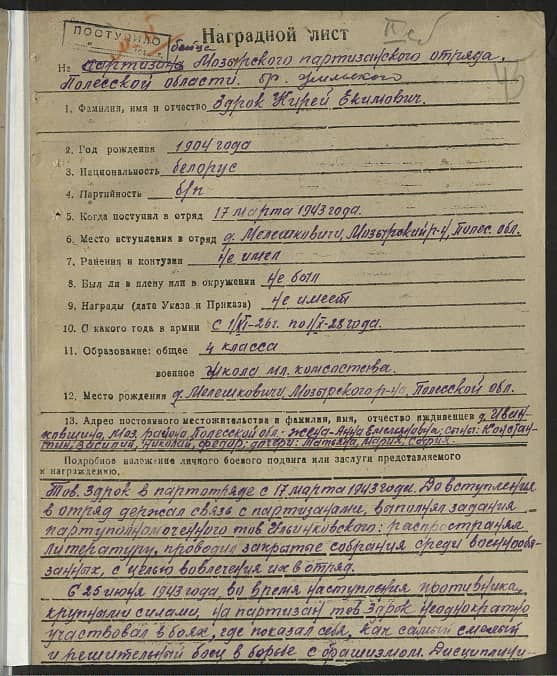 ПОСТУПИЛО
Наградной лист
45
бойца
На партизана Мозырского партизанского отряда,
Полесской области. бр.
1. Фамилия, имя и отчество Здрок Кирей Екимович.
2. Год рождения 1904 года
3. Национальность белорус
4. Партийность б/п
5. Когда поступил в отряд 17 марта 1943 года.
6. Место вступления в отряд д. Мелешковичи, Мозырский р-н, Полес. обл.
7. Ранения и контузии не имел
8. Был ли в плену или в окружении не был
9. Награды (дата Указа и Приказа) не имеет
10. С какого года в армии С 1/XI-26г. по 1/X-28 года.
11. Образование: общее 4 класса
военное школа мл. комсостава.
12. Место рождения д. Мелешковичи, Мозырского р-на, Полесской обл.
13. Адрес постоянного местожительства и фамилия, имя, отчество иждивенцев д.
Моз. района Полесской обл. - жена - Анна Емельяновна; сыны: Констан-
тин, Василий, Николай, Федор; дочери: Мария,
Подробное изложение личного боевого подвига или заслуги представляемого
к награждению.
Тов. Здрок в партотряде с 17 марта 1943 годи. До вступления
в отряд держал связь с партизанами, выполнял задания
партуполномоченного тов Ильинковского: распространял
литературу, проводил закрытое собрания среди военнообя-
занных, с целью вовлечения их в отряд.
С 25 июня 1943 года, во время наступления противника,
крупными силами, на партизан тов Здрок неоднократно
участвовал в боях, где показал себя, как самый смелый
и решительный боец в борьбе с фашизмом. Дисциплини-